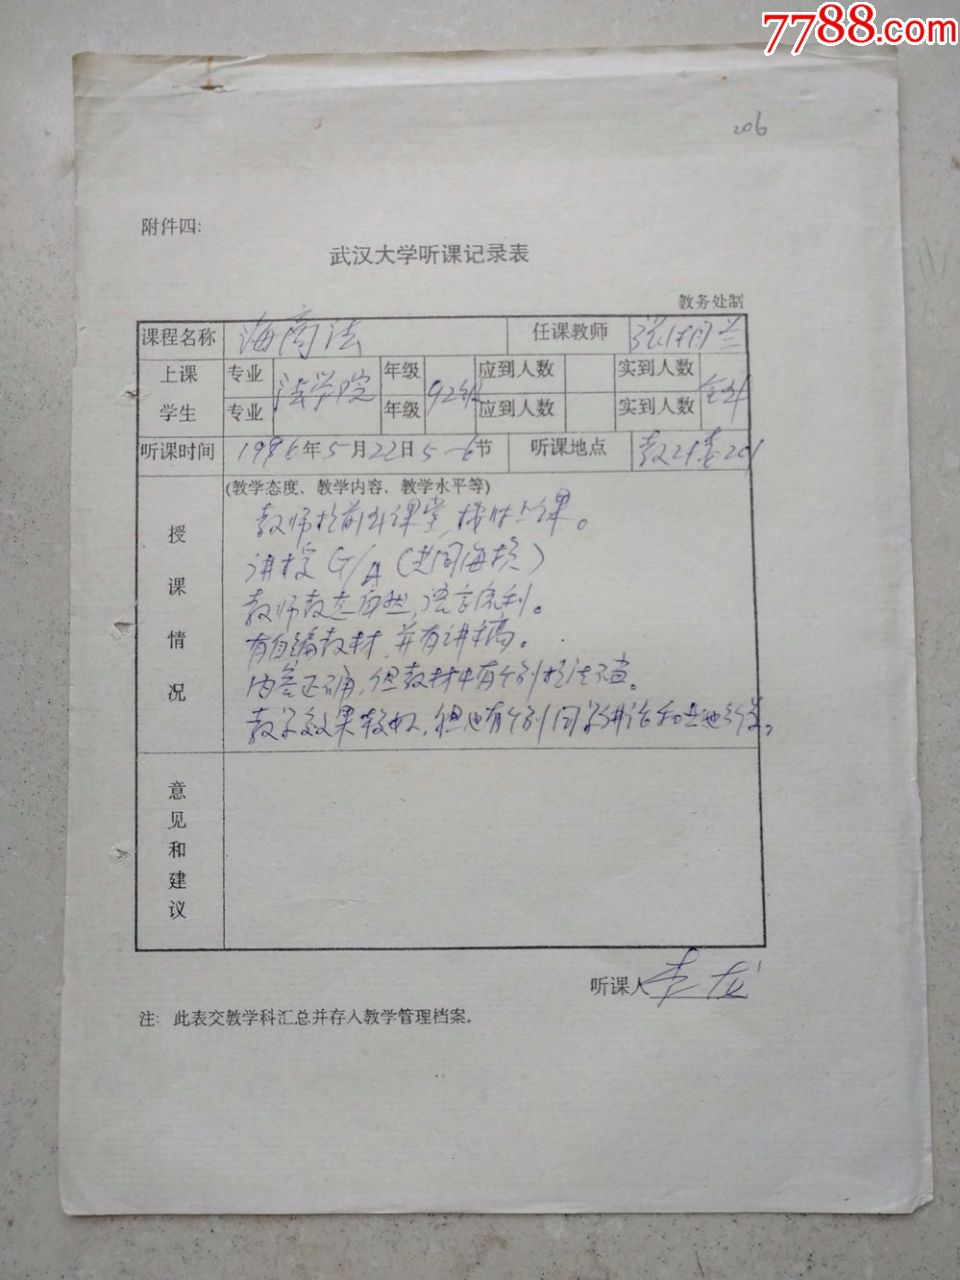 7788.com
206
附件四:
武汉大学听课记录表
教务处制
课程名称 海商法 任课教师 张湘兰
上课 专业 法学院 年级 92级 应到人数 实到人数 全到
学生 专业 年级 应到人数 实到人数
听课时间 1996年5月22日5-6节 听课地点 教2楼201
(教学态度、教学内容、教学水平等)
授课情况
教师提前到课堂,按时上课。
讲授 G/A (共同海损)
教师教态自然,语言流利。
有自编教材,并有讲稿。
内容正确,但教材中有个别提法不宜。
教学效果较好,但也有个别同学讲话和
意见和建议
听课人 李龙
注: 此表交教学科汇总并存入教学管理档案。